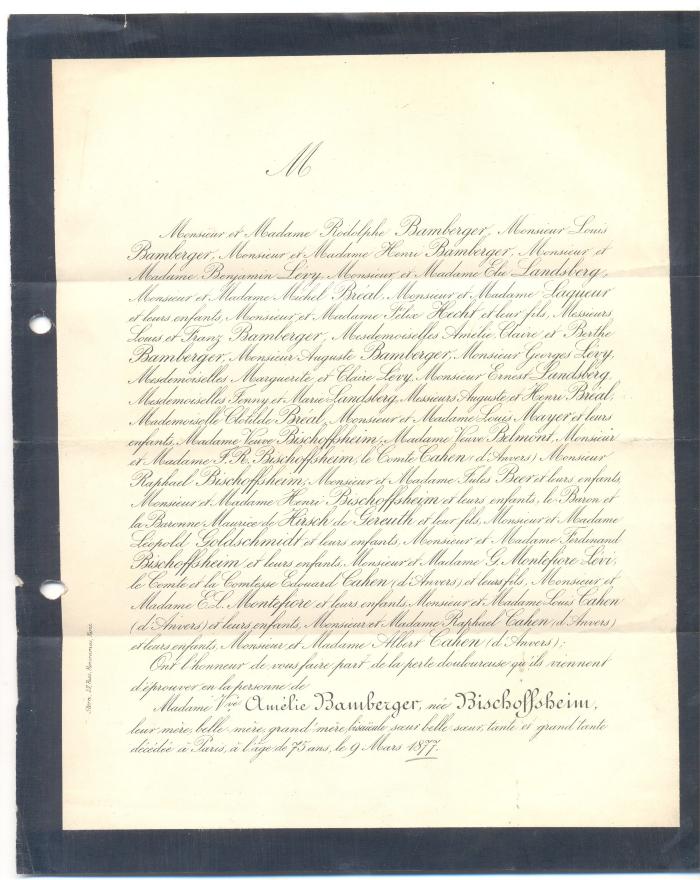 M
Monsieur et Madame Rodolphe Bamberger, Monsieur Louis
Bamberger, Monsieur et Madame Henri Bamberger, Monsieur et
Madame Benjamin Lévy, Monsieur et Madame Elie Landsberg,
Monsieur et Madame Michel Bréal, Monsieur et Madame Laqueur
et leurs enfants, Monsieur et Madame Félix Hecht et leur fils, Messieurs
Louis et Franz Bamberger, Mesdemoiselles Amélie, Claire et Berthe
Bamberger, Monsieur Auguste Bamberger, Monsieur Georges Lévy,
Mesdemoiselles Marguerite et Claire Lévy, Monsieur Ernest Landsberg,
Mesdemoiselles Jenny et Marie Landsberg, Messieurs Auguste et Henri Bréal,
Mademoiselle Clotilde Bréal, Monsieur et Madame Louis Mayer et leurs
enfants, Madame Veuve Bischoffsheim, Madame Veuve Belmont, Monsieur
et Madame J. R. Bischoffsheim, le Comte Cahen (d'Anvers) Monsieur
Raphael Bischoffsheim, Monsieur et Madame Jules Beer et leurs enfants,
Monsieur et Madame Henri Bischoffsheim et leurs enfants, le Baron et
la Baronne Maurice de Hirsch de Gereuth et leur fils, Monsieur et Madame
Léopold Goldschmidt et leurs enfants, Monsieur et Madame Ferdinand
Bischoffsheim et leurs enfants, Monsieur et Madame G. Montefiore Lévi,
le Comte et la Comtesse Edouard Cahen (d'Anvers) et leurs fils, Monsieur et
Madame E. L. Montefiore et leurs enfants, Monsieur et Madame Louis Cahen
(d'Anvers) et leurs enfants, Monsieur et Madame Raphael Cahen (d'Anvers)
et leurs enfants, Monsieur et Madame Albert Cahen (d'Anvers);
Ont l'honneur de vous faire part de la perte douloureuse qu'ils viennent
d'éprouver en la personne de
Madame Vve Amélie Bamberger, née Bischoffsheim,
leur mère, belle-mère, grand'mère, bisaïeule, sœur, belle-sœur, tante et grand'tante
décédée à Paris, à l'âge de 75 ans, le 9 Mars 1877.
Stern